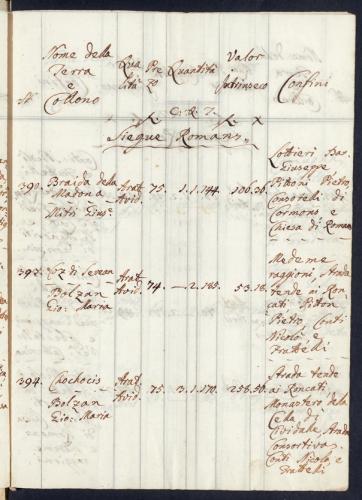 N.
Nome della Terra e Collono
Qua lità
Pre zo
Quantità
Valor Intrinseco
Confini
C: R: 7.
Siegue Romans
392. Braida della Madona
Mitri Gius:
Arat Avid.
75.
1. 1. 144.
106. 20.
Giuseppe
Pittoni Pietro,
Consorelli di
Cormons, e
Chiesa di Romans
393.
Bolzan
Gio: Maria
Arat Avid.
74.
— 2. 185.
53. 18.
Medeme
raggioni, Strada
tende ai Ron
cati Pitton
Pietro, Conti
Nicolò e
Frattelli
394. Chochocis
Bolzan
Gio: Maria
Arat Avid.
75.
3. 1. 170.
258. 50.
Strada tende
ai Roncati
Monastero della
Cella di
Cividalle Strada
Consortiva
Conti Nicolò e
Frattelli